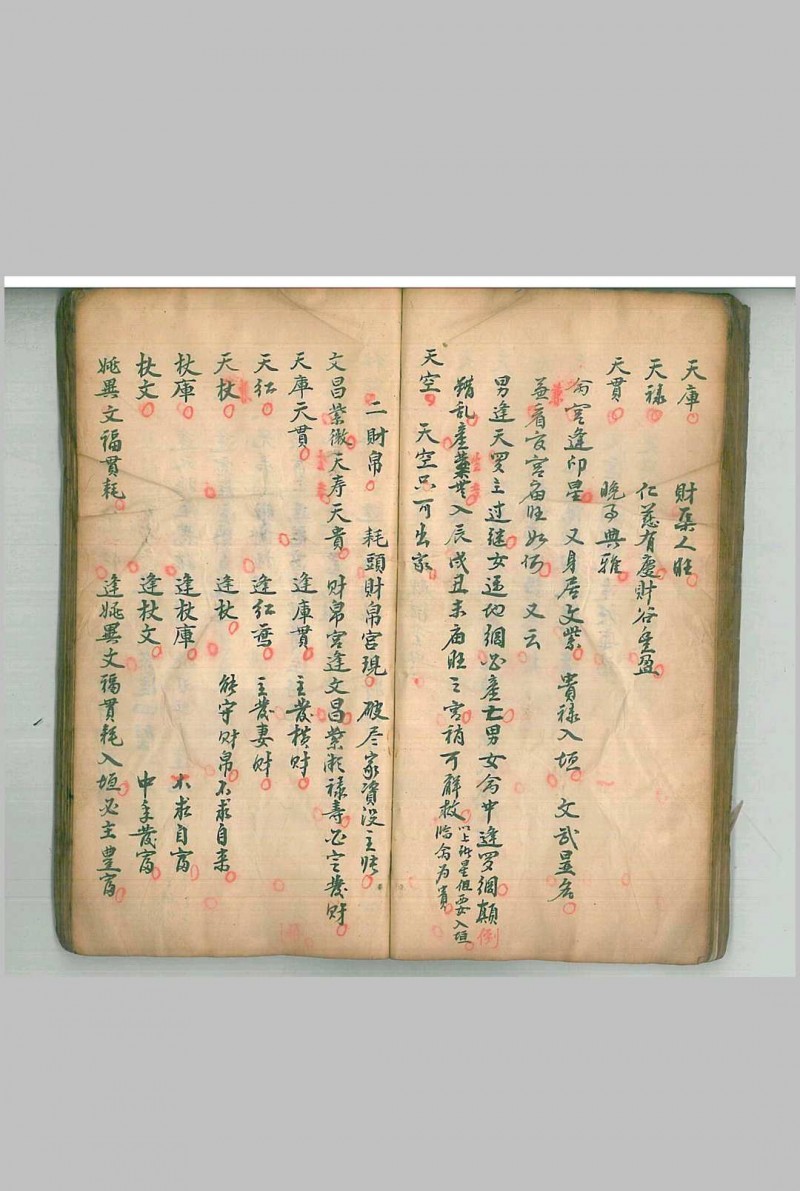 天庫 財帛人旺
天祿 仁慈有慶財谷豐盈
天貫 晚年典雅
命宮逢印星 又身居文紫 貴祿入垣 文武呈名
兼看安宮廟旺如何 又云
男逢天罗主过継女逢地網必產亡男女命中逢罗網顛倒
錯乱產業世入辰戌丑未廟旺之宮稍可解救 以上諸星但要入垣臨命为貴
天空 天空只可出家
二財帛 耗頭財帛宮現 破尽家資没主張
文昌紫微天寿天貴 財帛宮逢文昌紫微祿壽必定發財
天庫天貫 逢庫貫 主發橫財
天红 逢红鸾 主發妻財
天杖 逢杖 能守財帛不求自来
杖庫 逢杖庫 不求自富
杖文 逢杖文 中年發富
姚異文福貫耗 逢姚異文福貫耗入垣必主豊富